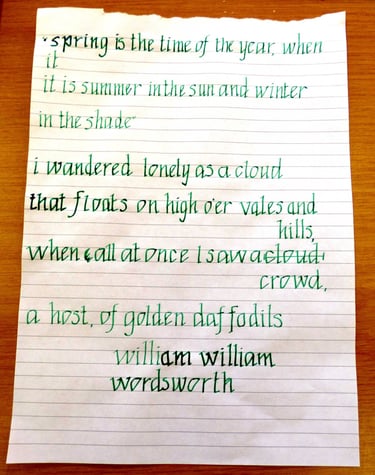 spring is the time of the year, when
it
it is summer in the sun and winter
in the shade
i wandered lonely as a cloud
that floats on high o'er vales and
hills,
when all at once I saw a cloud
crowd,
a host, of golden daffodils
william william
wordsworth